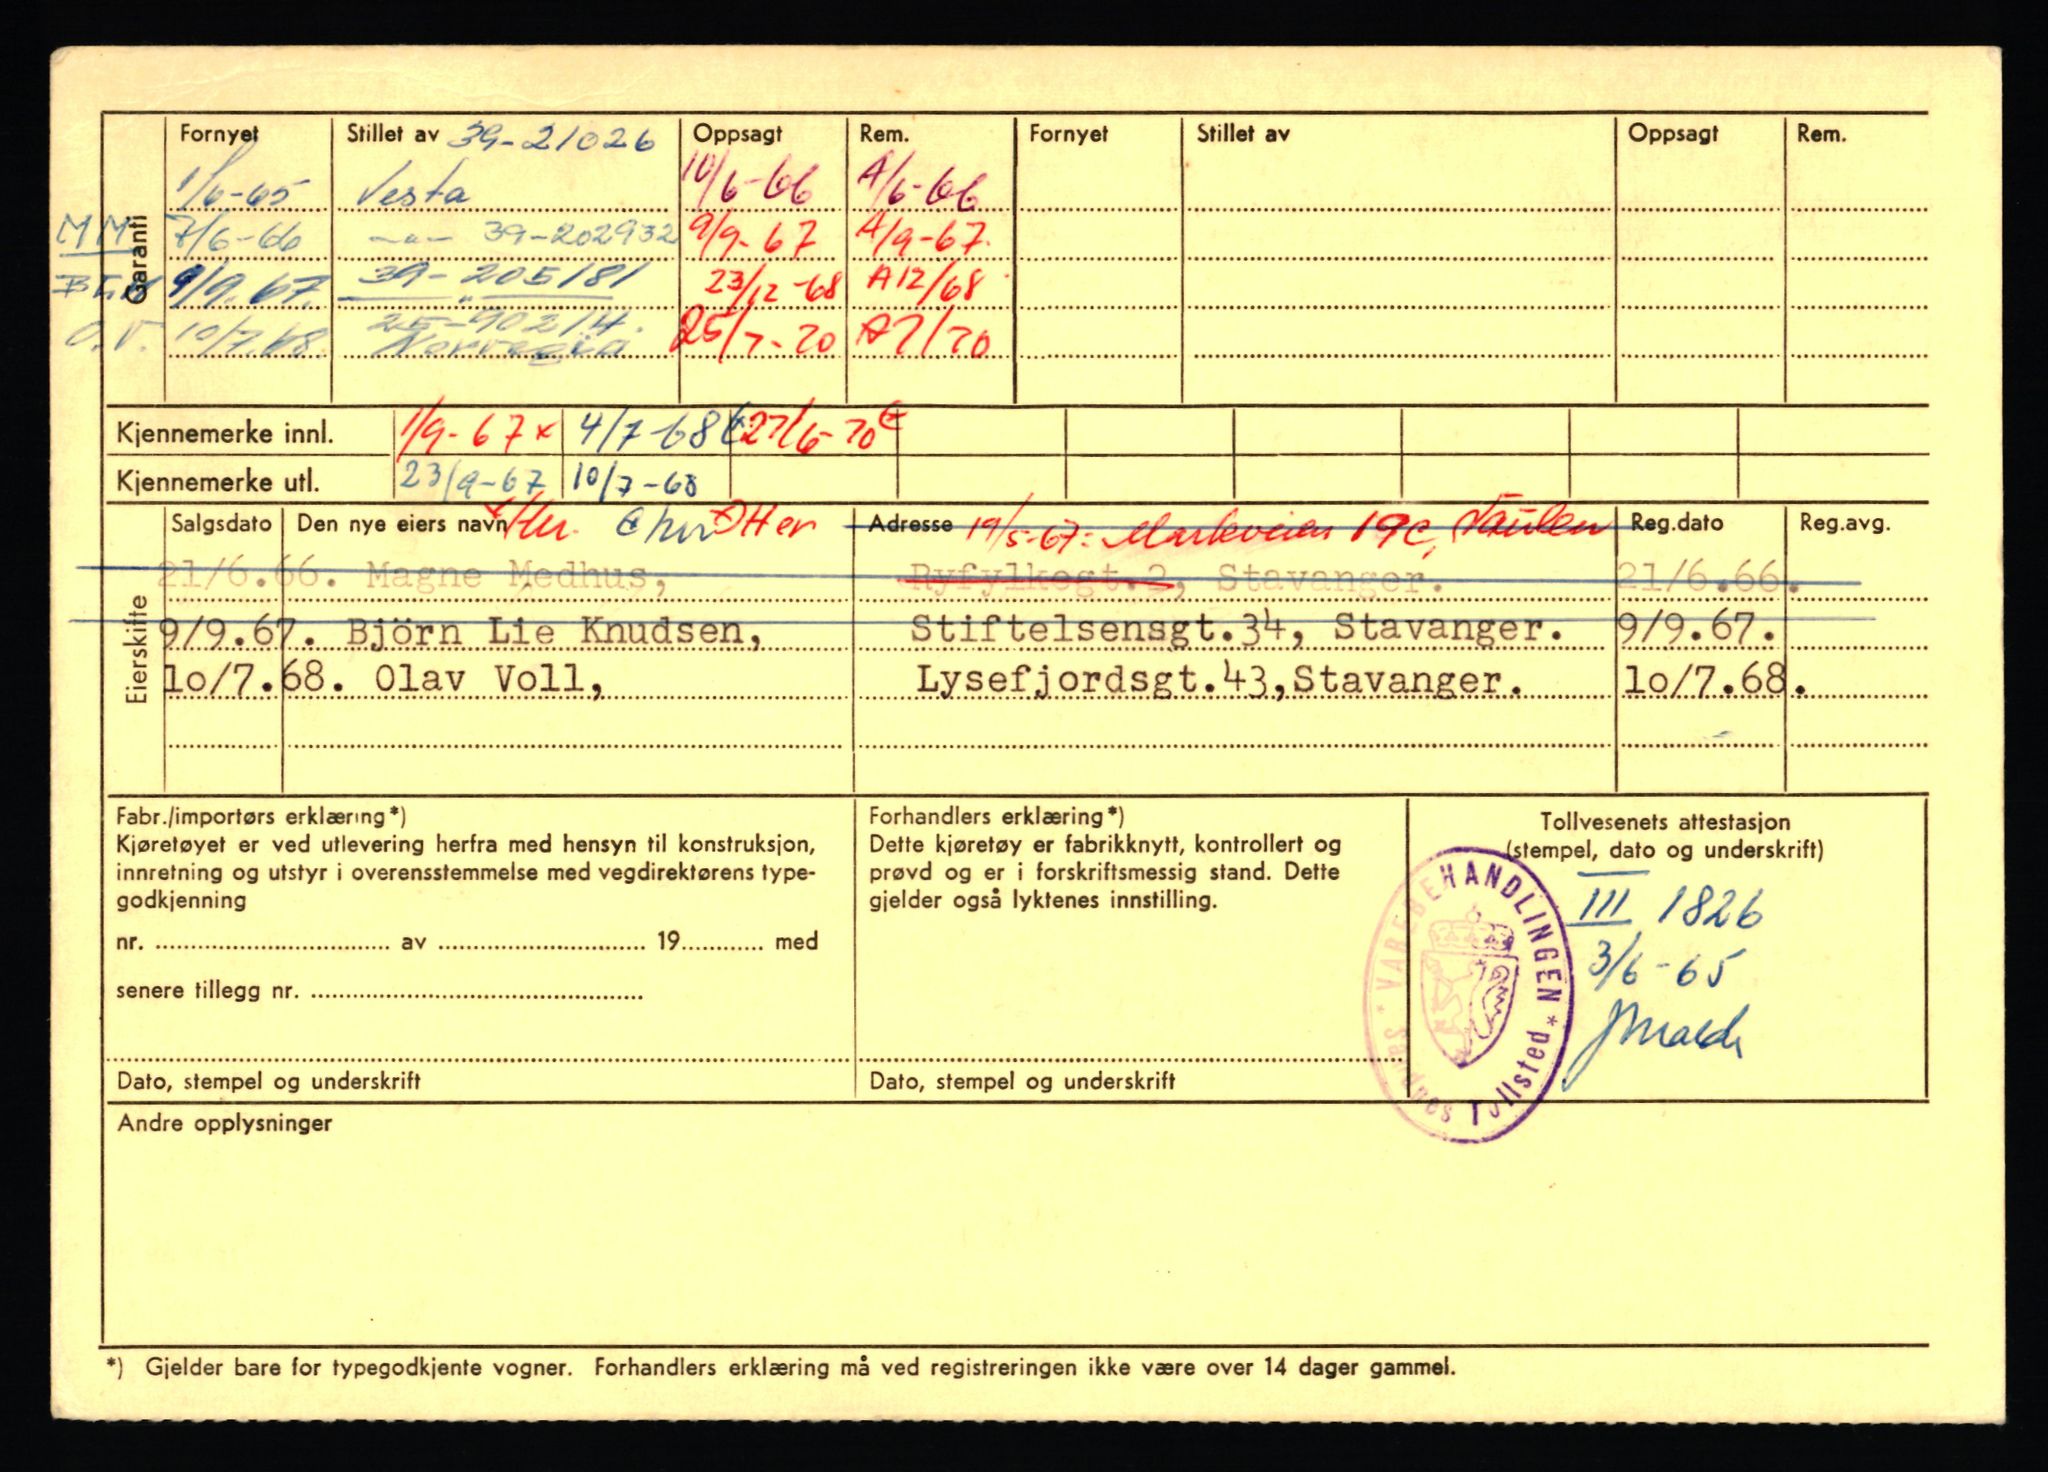 Fornyet Stillet av 39-21026 Oppsagt Rem. Fornyet Stillet av Oppsagt Rem.
Garanti
1/6-65 Vesta 10/6-66 A/6-66
MM 7/6-66 —"— 39-202932 9/9-67 A/9-67.
9/9.67. 39-205181 23/12-68 A12/68
O.V. 10/7.68. 25-90214. Norvegia 25/7-70 A7/70
Kjennemerke innl. 1/9-67x 4/7-68 27/6-70
Kjennemerke utl. 23/9-67 10/7-68
Salgsdato Den nye eiers navn Adresse 19/5-67: Markveien 19c, Reg.dato Reg.avg.
Eierskifte
21/6.66. Magne Medhus, Ryfylkegt.2, Stavanger. 21/6.66.
9/9.67. Björn Lie Knudsen, Stiftelsensgt.34, Stavanger. 9/9.67.
lo/7.68. Olav Voll, Lysefjordsgt.43,Stavanger. lo/7.68.
Fabr./importørs erklæring*)
Kjøretøyet er ved utlevering herfra med hensyn til konstruksjon,
innretning og utstyr i overensstemmelse med vegdirektørens type-
godkjenning
nr. ........ av ........ 19........ med
senere tillegg nr. ........
Dato, stempel og underskrift
Forhandlers erklæring*)
Dette kjøretøy er fabrikknytt, kontrollert og
prøvd og er i forskriftsmessig stand. Dette
gjelder også lyktenes innstilling.
Dato, stempel og underskrift
Tollvesenets attestasjon
(stempel, dato og underskrift)
III 1826
3/6-65
* VAREBEHANDLINGEN *
Sandnes Tollsted
Andre opplysninger
*) Gjelder bare for typegodkjente vogner. Forhandlers erklæring må ved registreringen ikke være over 14 dager gammel.